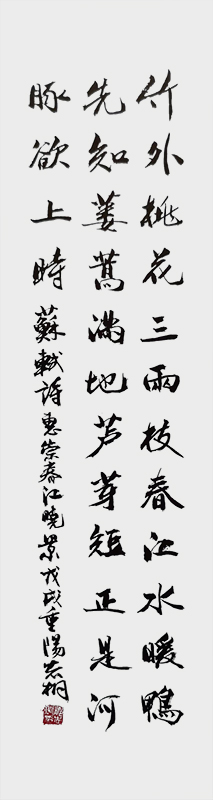 竹外桃花三兩枝春江水暖鴨
先知蒌蒿滿地芦芽短正是河
豚欲上時
蘇軾詩惠崇春江曉景戊戌重陽志桐